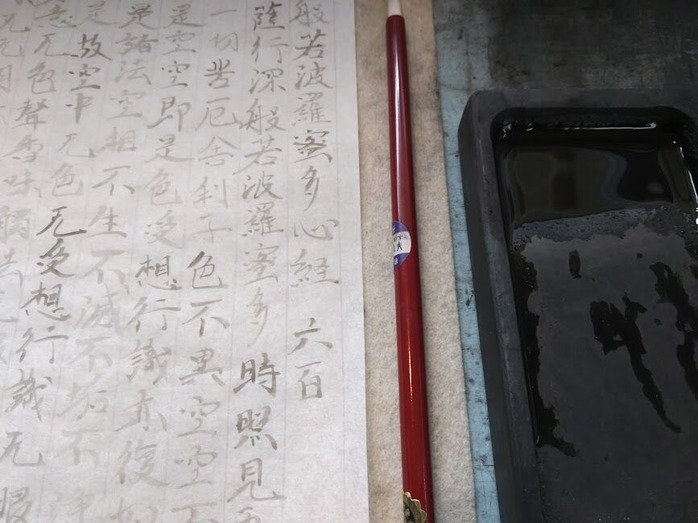 般若波羅蜜多心経 六百
薩行深般若波羅蜜多時照見五
一切苦厄舍利子色不異空空不
是空空即是色受想行識亦復如
是諸法空相不生不滅不垢不浄
故空中无色无受想行識无眼
色聲香味觸法